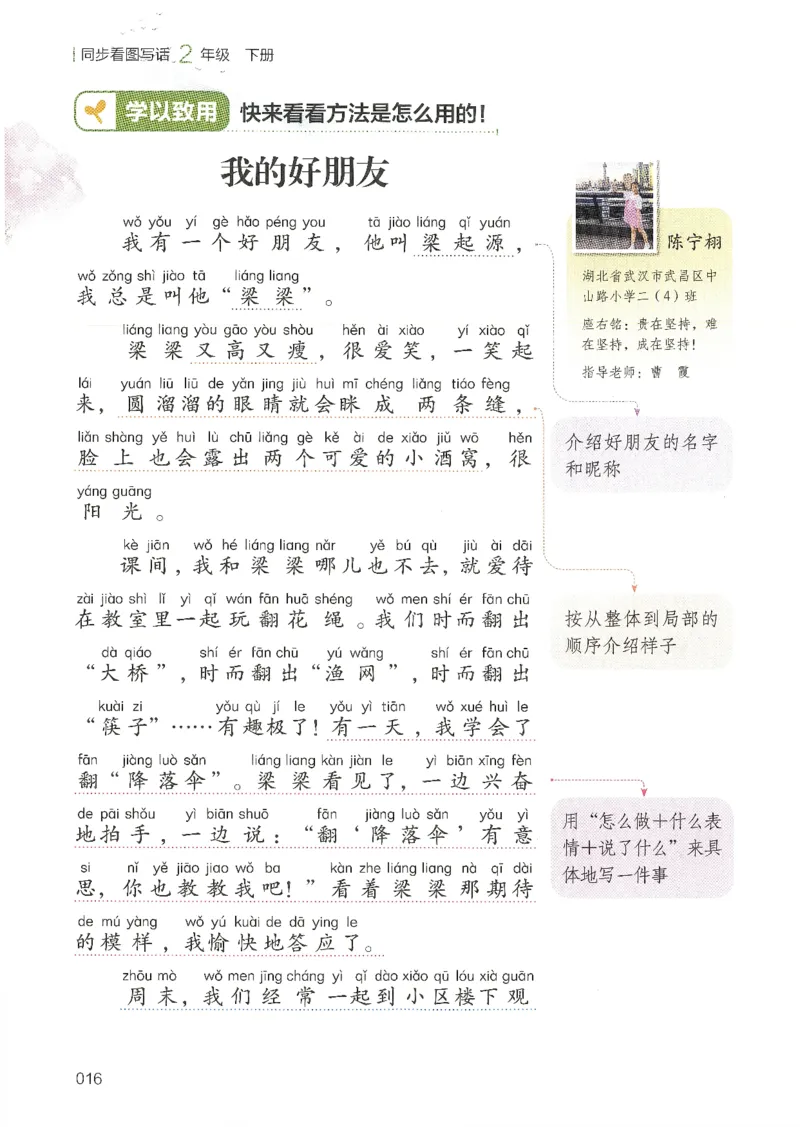 同步看图写话 2 年级 下册
学以致用 快来看看方法是怎么用的!
我的好朋友
wǒ yǒu yí gè hǎo péng you tā jiào liáng qǐ yuán
我有一个好朋友，他叫梁起源，
wǒ zǒng shì jiào tā liáng liang
我总是叫他“梁梁”。
liáng liang yòu gāo yòu shòu hěn ài xiào yí xiào qǐ
梁梁又高又瘦，很爱笑，一笑起
lái yuán liū liū de yǎn jing jiù huì mī chéng liǎng tiáo fèng
来，圆溜溜的眼睛就会眯成两条缝，
liǎn shàng yě huì lù chū liǎng gè kě ài de xiǎo jiǔ wō hěn
脸上也会露出两个可爱的小酒窝，很
yáng guāng
阳光。
kè jiān wǒ hé liáng liang nǎr yě bú qù jiù ài dāi
课间，我和梁梁哪儿也不去，就爱待
zài jiào shì lǐ yì qǐ wán fān huā shéng wǒ men shí ér fān chū
在教室里一起玩翻花绳。我们时而翻出
dà qiáo shí ér fān chū yú wǎng shí ér fān chū
“大桥”，时而翻出“渔网”，时而翻出
kuài zi yǒu qù jí le yǒu yì tiān wǒ xué huì le
“筷子”……有趣极了！有一天，我学会了
fān jiàng luò sǎn liáng liang kàn jiàn le yì biān xīng fèn
翻“降落伞”。梁梁看见了，一边兴奋
de pāi shǒu yì biān shuō fān jiàng luò sǎn yǒu yì
地拍手，一边说：“翻‘降落伞’有意
si nǐ yě jiāo jiao wǒ ba kàn zhe liáng liang nà qī dài
思，你也教教我吧！”看着梁梁那期待
de mú yàng wǒ yú kuài de dā ying le
的模样，我愉快地答应了。
zhōu mò wǒ men jīng cháng yì qǐ dào xiǎo qū lóu xià guān
周末，我们经常一起到小区楼下观
陈宁栩
湖北省武汉市武昌区中
山路小学二（4）班
座右铭：贵在坚持，难
在坚持，成在坚持！
指导老师：曹 霞
介绍好朋友的名字
和昵称
按从整体到局部的
顺序介绍样子
用“怎么做+什么表
情+说了什么”来具
体地写一件事
016